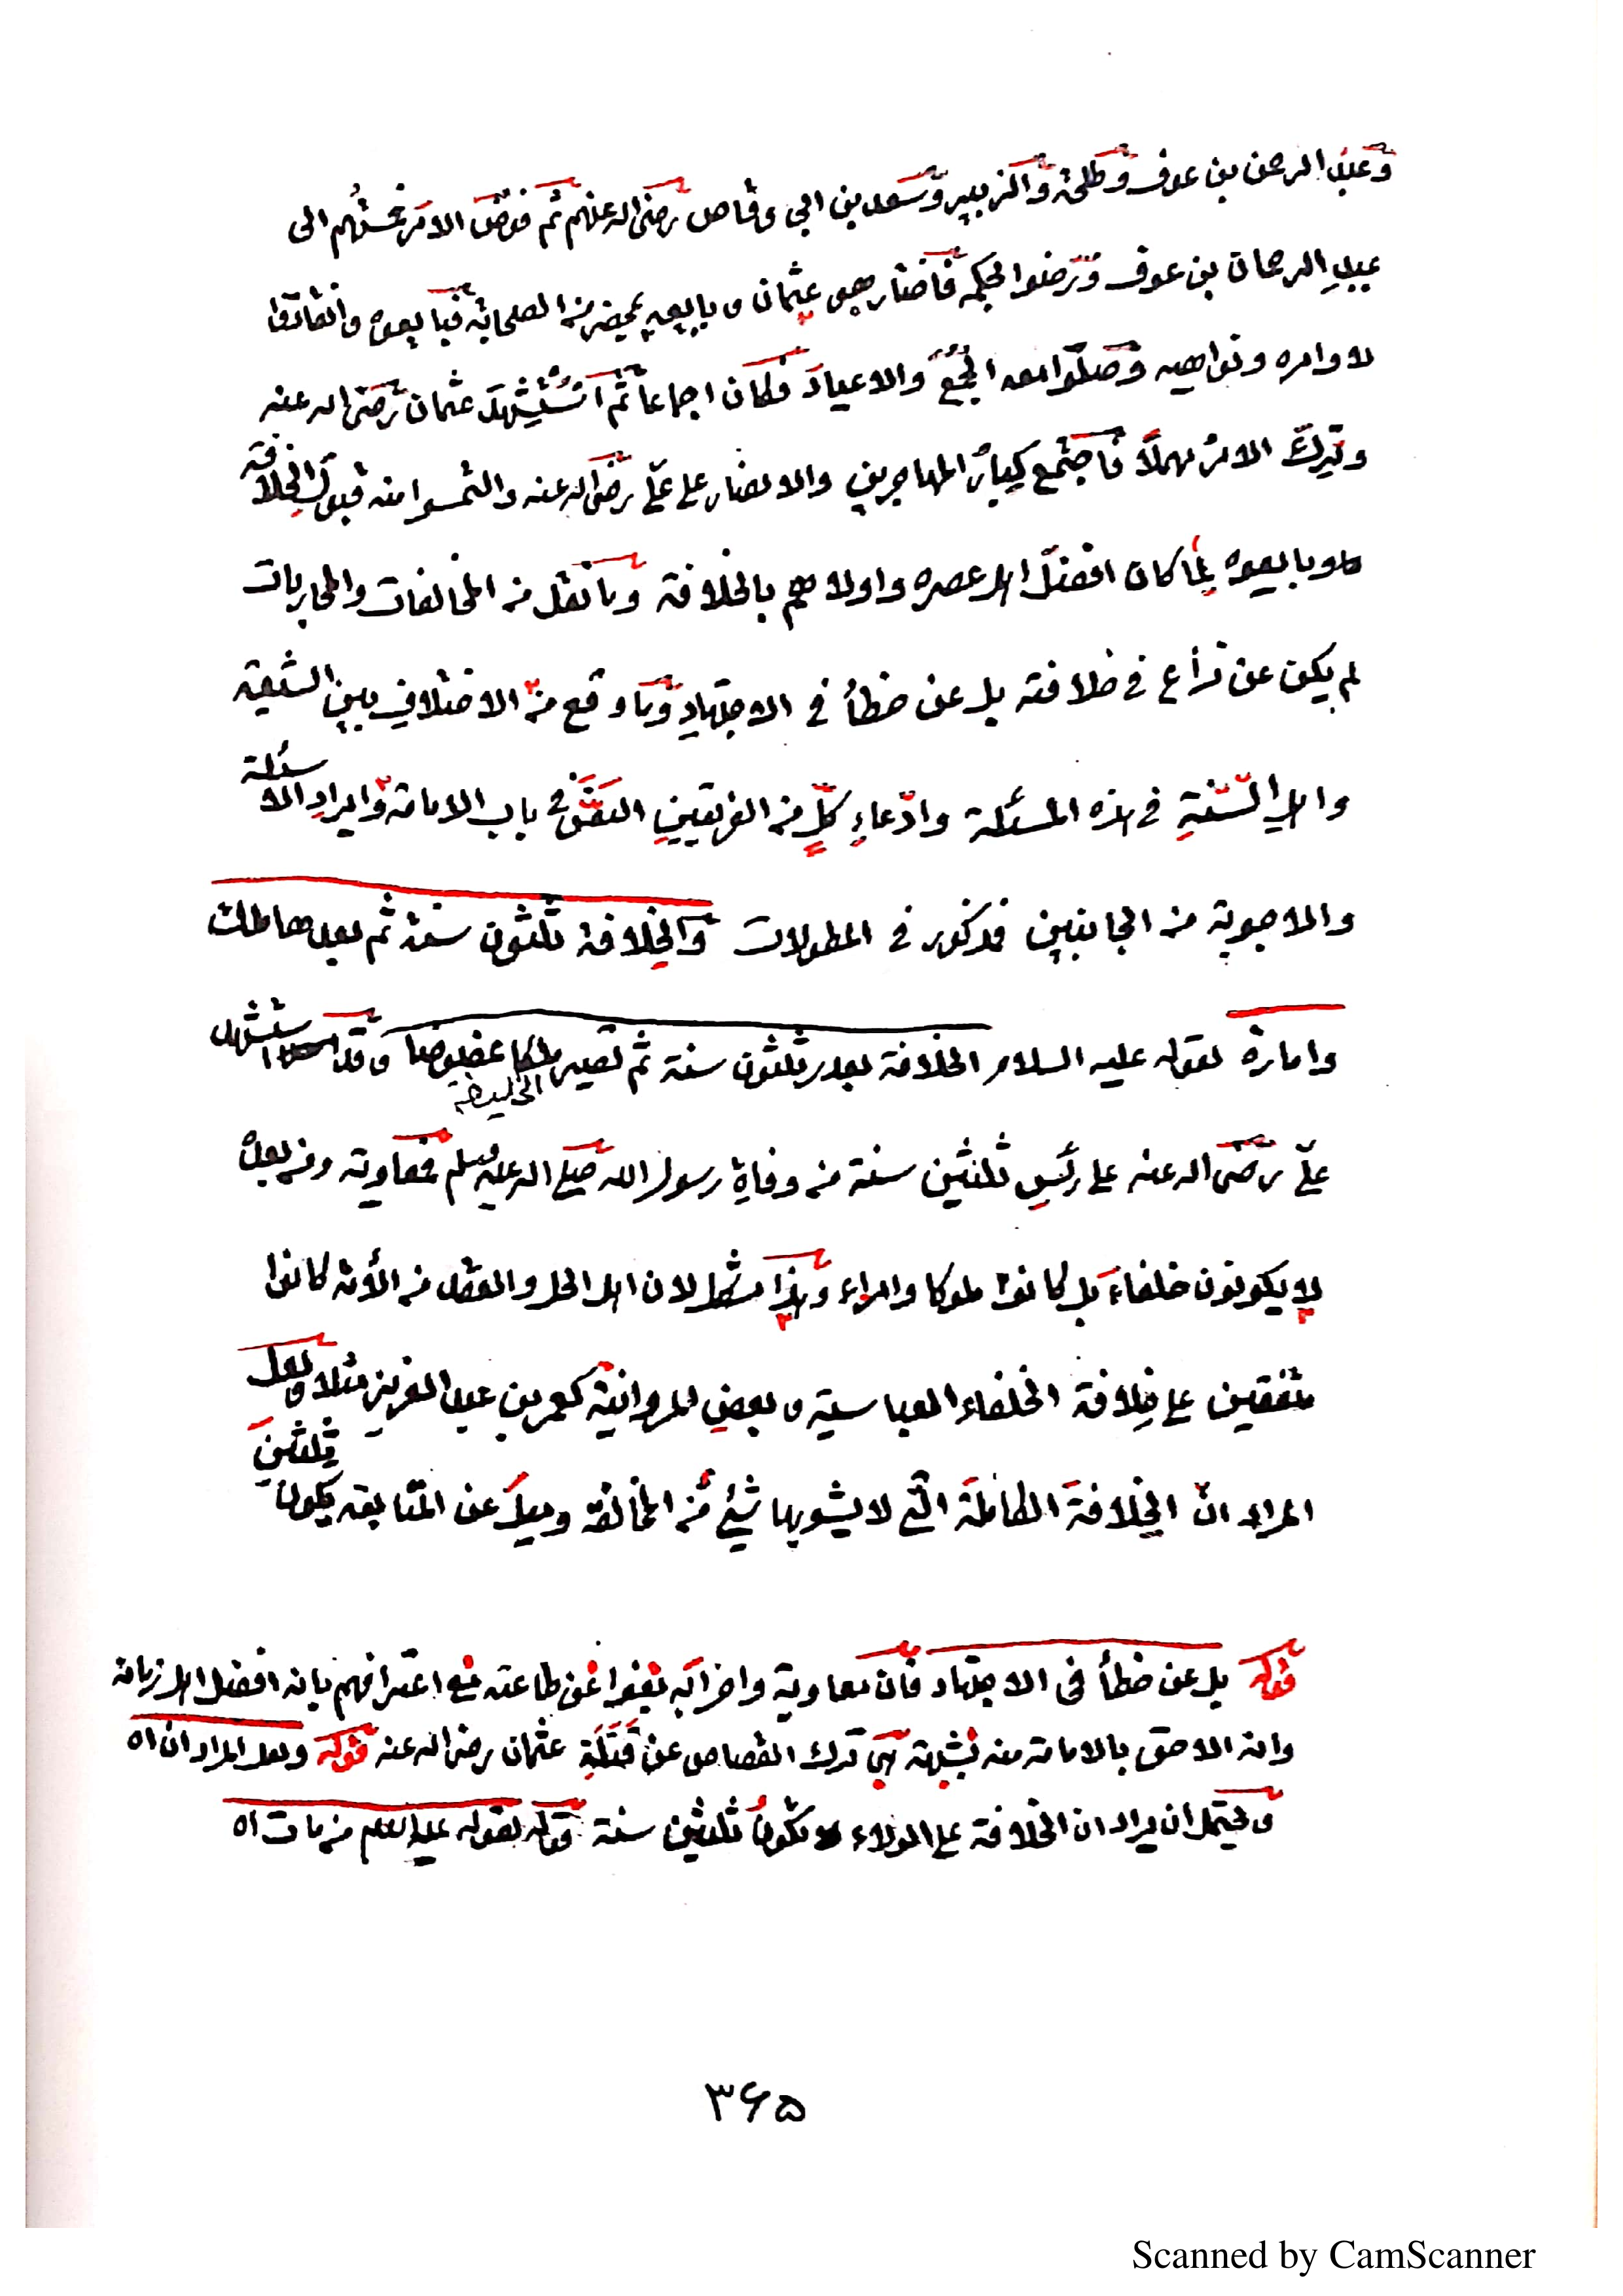 وعبدُ الرحمن بن عوف وطلحة والزبير وسعد بن ابي وقاص رضى اله عنهم ثم فوّض الامرَ خمستُهم الى
عبدِ الرحمان بن عوف ورضوا بحكمه فاختار هو عثمان و بايعه بمحضر من الصحابة فبايعوه وانقادوا
لاوامره ونواهيه وصلّوا معه الجُمَعَ والاعيادَ فكان اجماعا ثم استُشهِدَ عثمان رضى اله عنه
وتركَ الامرَ مهملاً فاجتمع كبارُ المهاجرين والانصار على علىّ رضى اله عنه والتمسوا منه قبولَ الخلافة
وبايعوه لِما كان افضلَ اهل عصره واولاهم بالخلافة وما نقل من المخالفات والمحاربات
لم يكن عن نزاع فى خلافته بل عن خطأ فى الاجتهادِ وما وقع من الاختلافِ بين الشيعة
واهلِ السّنّةِ فى هذه المسئلة وادّعاءِ كلٍّ من الفريقينِ النصَّ فى باب الامامة وايرادِ الاسئلة
والاجوبة من الجانبين فمذكور فى المطولات والخِلافة ثلثون سنة ثم بعدها ملك
وامارة لقوله عليه السلام الخلافة بعدى ثلثون سنة ثم تصير ملكا عضوضا وقد استشهد
علىّ رضى اله عنه على رأسِ ثلثين سنة من وفاةِ رسول الله صلى اله عليه وسلم فمعاوية ومن بعده
لا يكونون خلفاءَ بل كانوا ملوكا وامراء وهذا مشكل لان اهل الحل والعقد من الأمة كانوا
متفقين على خِلافة الخلفاء العباسية وبعضِ المروانية كعمر بن عبد العزيز مثلا ولعل
المراد انّ الخِلافةَ الكاملةَ الّتى لا يشوبها شيئ من المخالفة وميلٍ عن المتابعة يكون ثلثينَ
قوله بل عن خطأ فى الاجتهاد فان معاوية واحزابَه بغوا عن طاعته مع اعترافهم بانه افضل اهل زمانه
وانه الاحق بالامامة منه بشبهة هى ترك القصاص عن قَتَلَةِ عثمان رضى اله عنه قوله ولعل المراد ان اه
ويحتمل ان يراد ان الخلافة على الولاء تكونُ ثلثين سنة قوله لقوله عليه السلام من مات اه
٣۶۵
Scanned by CamScanner